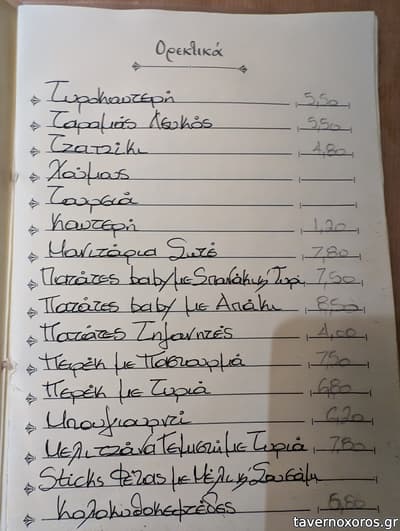 Ορεκτικά
Τυροκαυτερή 5,50
Ταραμάς Λευκός 5,50
Τζατζίκι 4,80
Χούμους
Τουρσιά
Καυτερή 1,20
Μανιτάρια Σωτέ 7,80
Πατάτες baby με Σπανάκι κ' Τυρί 7,50
Πατάτες baby με Απάκι 8,50
Πατάτες Τηγανητές 4,00
Περέκ με Παστουρμά 7,50
Περέκ με Τυριά 6,80
Μπουγιουρντί 6,20
Μελιτζάνα Γεμιστή με Τυριά 7,80
Sticks Φέτας με Μέλι κ' Σουσάμι
Κολοκυθοκεφτέδες 6,80
tavernoxoros.gr